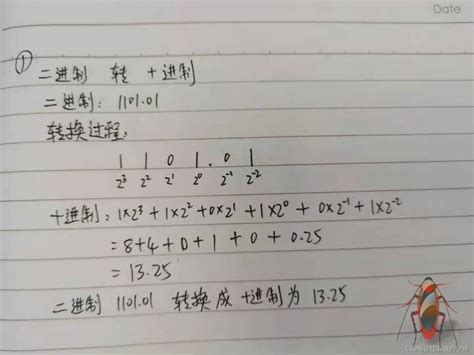 Date
①
二进制 转 十进制
二进制: 1101.01
转换过程:
1 1 0 1 . 0 1
2³ 2² 2¹ 2⁰ 2⁻¹ 2⁻²
十进制: 1×2³ + 1×2² + 0×2¹ + 1×2⁰ + 0×2⁻¹ + 1×2⁻²
= 8 + 4 + 0 + 1 + 0 + 0.25
= 13.25
二进制 1101.01 转换成 十进制为 13.25